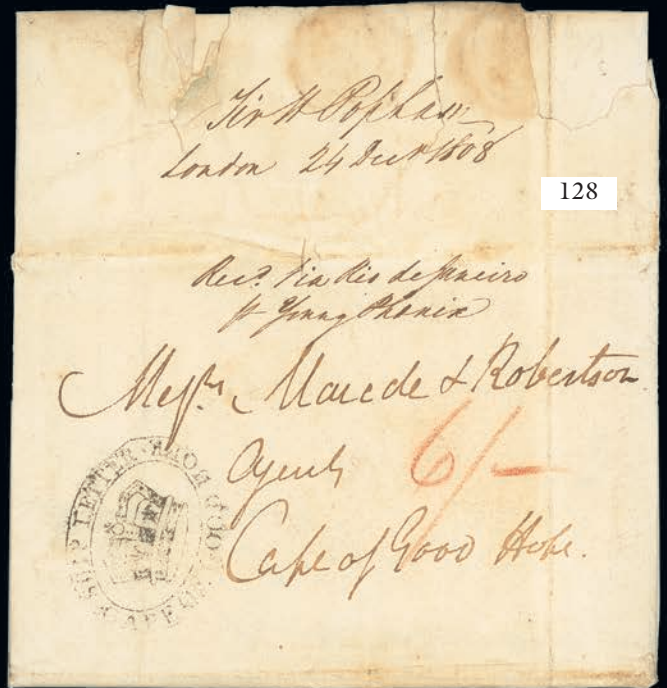 Sir H Popham
London 24 Decr 1808
128
Recd. via Rio de Janeiro
pr Young Phoenix
Messrs. Maude & Robertson
Agents
6/-
Cape of Good Hope.
SHIP LETTER · CAPE OF GOOD HOPE